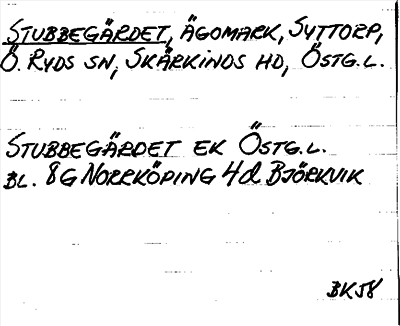 STUBBEGÄRDET, ÄGOMARK, SYTTORP,
Ö. RYDS SN, SKÄRKINDS HD, ÖSTG.L.
STUBBEGÄRDET EK ÖSTG.L.
BL. 8G NORRKÖPING 4d BJÖRKVIK
BK58